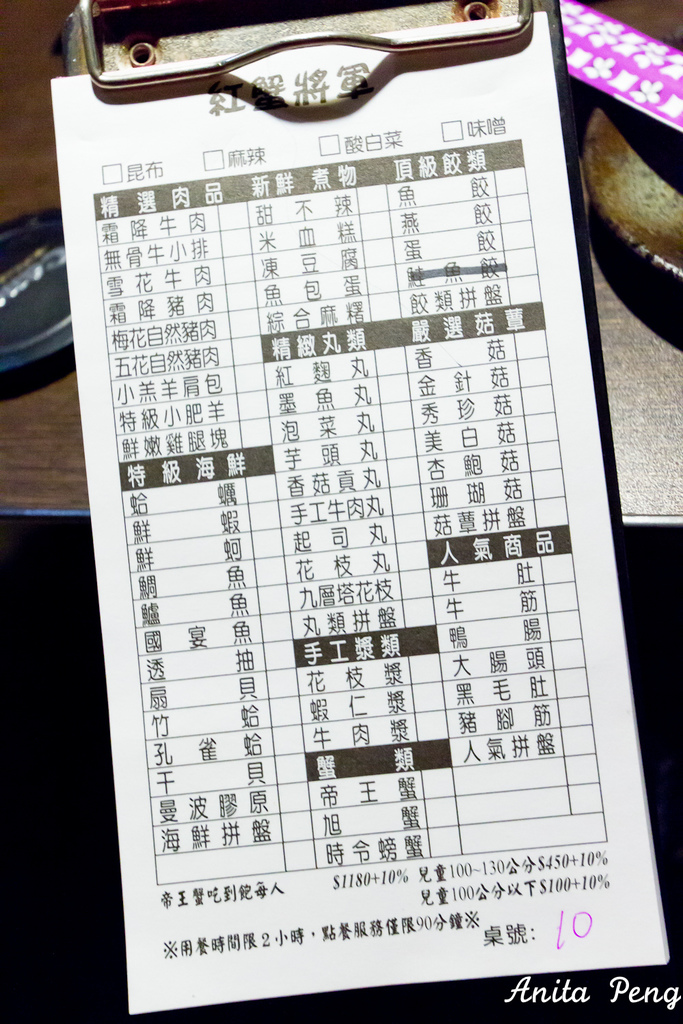 紅蟹將軍
□昆布 □麻辣 □酸白菜 □味噌
精選肉品
霜降牛肉
無骨牛小排
雪花牛肉
霜降豬肉
梅花自然豬肉
五花自然豬肉
小羔羊肩包
特級小肥羊
鮮嫩雞腿塊
特級海鮮
蛤蠣
鮮蝦
鮮蚵
鯛魚
鱸魚
國宴魚
透抽
扇貝
竹蛤
孔雀蛤
干貝
曼波膠原
海鮮拼盤
新鮮煮物
甜不辣
米血糕
凍豆腐
魚包蛋
綜合麻糬
精緻丸類
紅麴丸
墨魚丸
泡菜丸
芋頭丸
香菇貢丸
手工牛肉丸
起司丸
花枝丸
九層塔花枝
丸類拼盤
手工漿類
花枝漿
蝦仁漿
牛肉漿
蟹類
帝王蟹
旭蟹
時令螃蟹
頂級餃類
魚餃
燕餃
蛋餃
鮭魚餃
餃類拼盤
嚴選菇蕈
香菇
金針菇
秀珍菇
美白菇
杏鮑菇
珊瑚菇
菇蕈拼盤
人氣商品
牛肚
牛筋
鴨腸
大腸頭
黑毛肚
豬腳筋
人氣拼盤
帝王蟹吃到飽每人 $1180+10% 兒童100~130公分$450+10%
兒童100公分以下$100+10%
※用餐時間限2小時，點餐服務僅限90分鐘※
桌號：10
Anita Peng